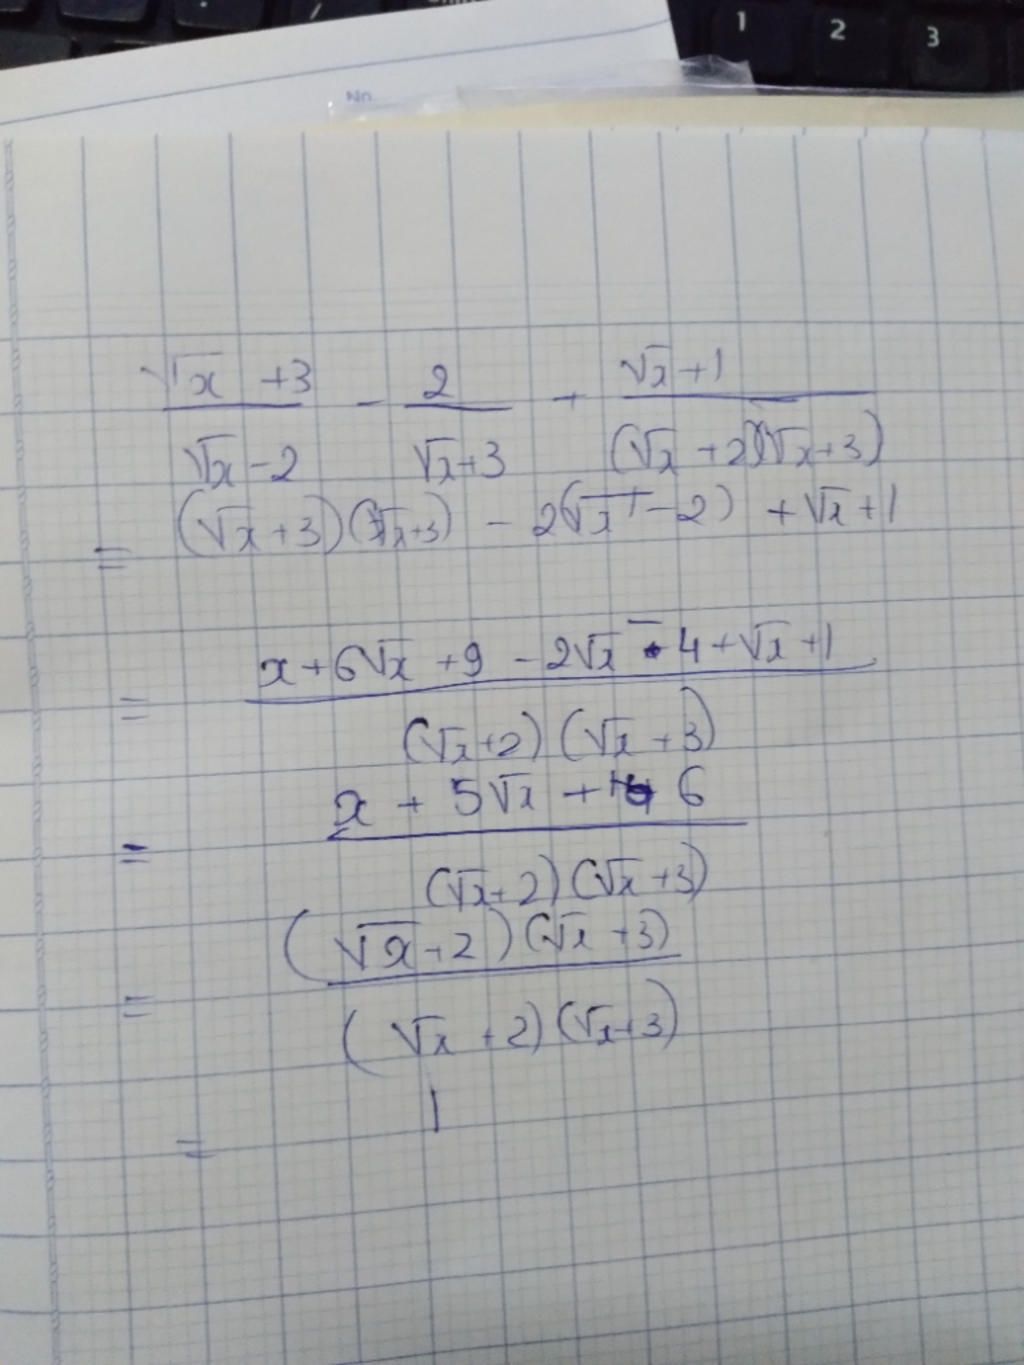 No
1 2 3
√x +3 / √x -2 - 2 / √x+3 + √x+1 / (√x +2)(√x+3)
= (√x+3)(√x+3) - 2(√x -2) +√x+1
= x+6√x +9 -2√x - 4+√x +1 / (√x+2) (√x +3)
= x + 5√x + 6 / (√x+2)(√x+3)
= (√x+2)(√x +3) / (√x +2)(√x+3)
= 1